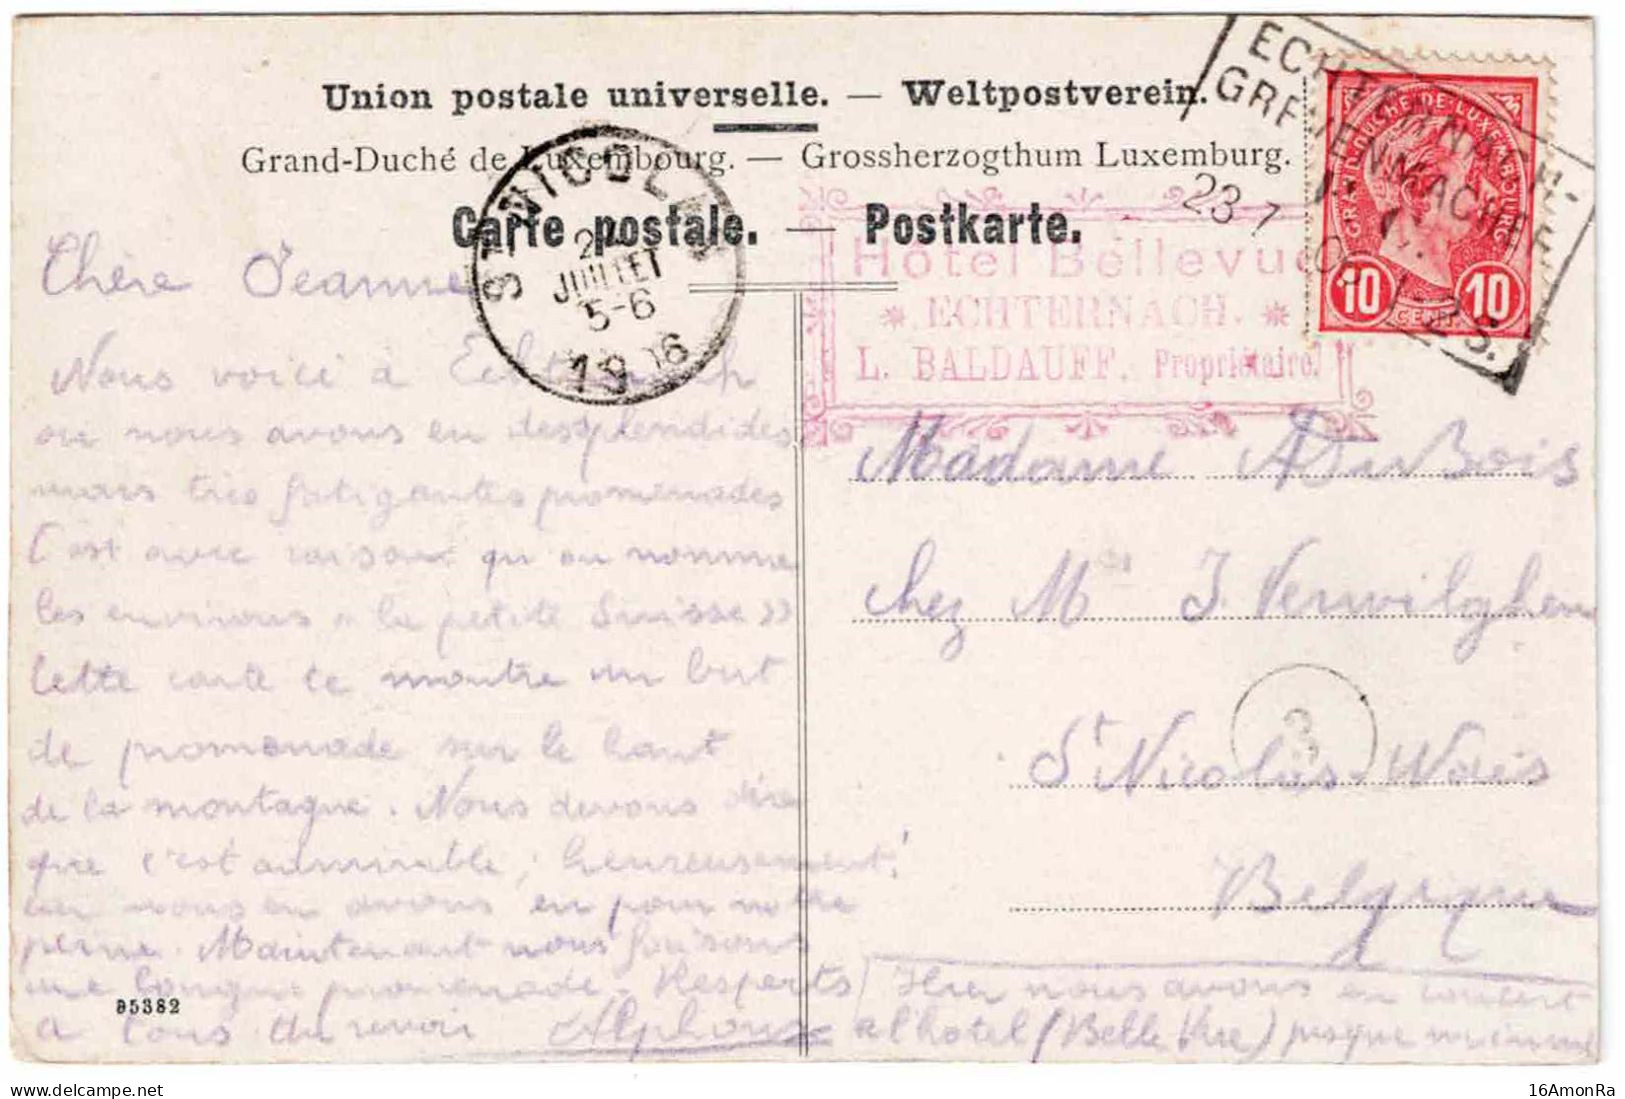 Union postale universelle. — Weltpostverein.
Grand-Duché de Luxembourg. — Grossherzogthum Luxemburg.
Carte postale. — Postkarte.
ST NICOLAS
2
JUILLET
5-6
1906
Hôtel Bellevue
* ECHTERNACH. *
L. BALDAUFF, Propriétaire.
ECHTERNACH-
GREVENMACHER
23 7
GRAND DUCHÉ DE LUXEMBOURG
10 CENT. 10
Chère Jeanne
Nous voici à Echternach
ou nous avons eu des splendides
mais très fatigantes promenades
C'est avec raison qu'on nomme
les environs « la petite Suisse »
Cette carte te montre un but
de promenade sur le haut
de la montagne. Nous devons dire
que c'est admirable, heureusement!
car nous en avons eu pour notre
peine. Maintenant nous faisons
une longue promenade. Respects
a tous au revoir Alphonse
Hier nous avons eu concert
a l'hôtel (Belle Vue) jusque minuit
Madame A DuBois
chez Mr J. Verwilghen
St Nicolas-Waes
Belgique
3
95382
16AmonRa